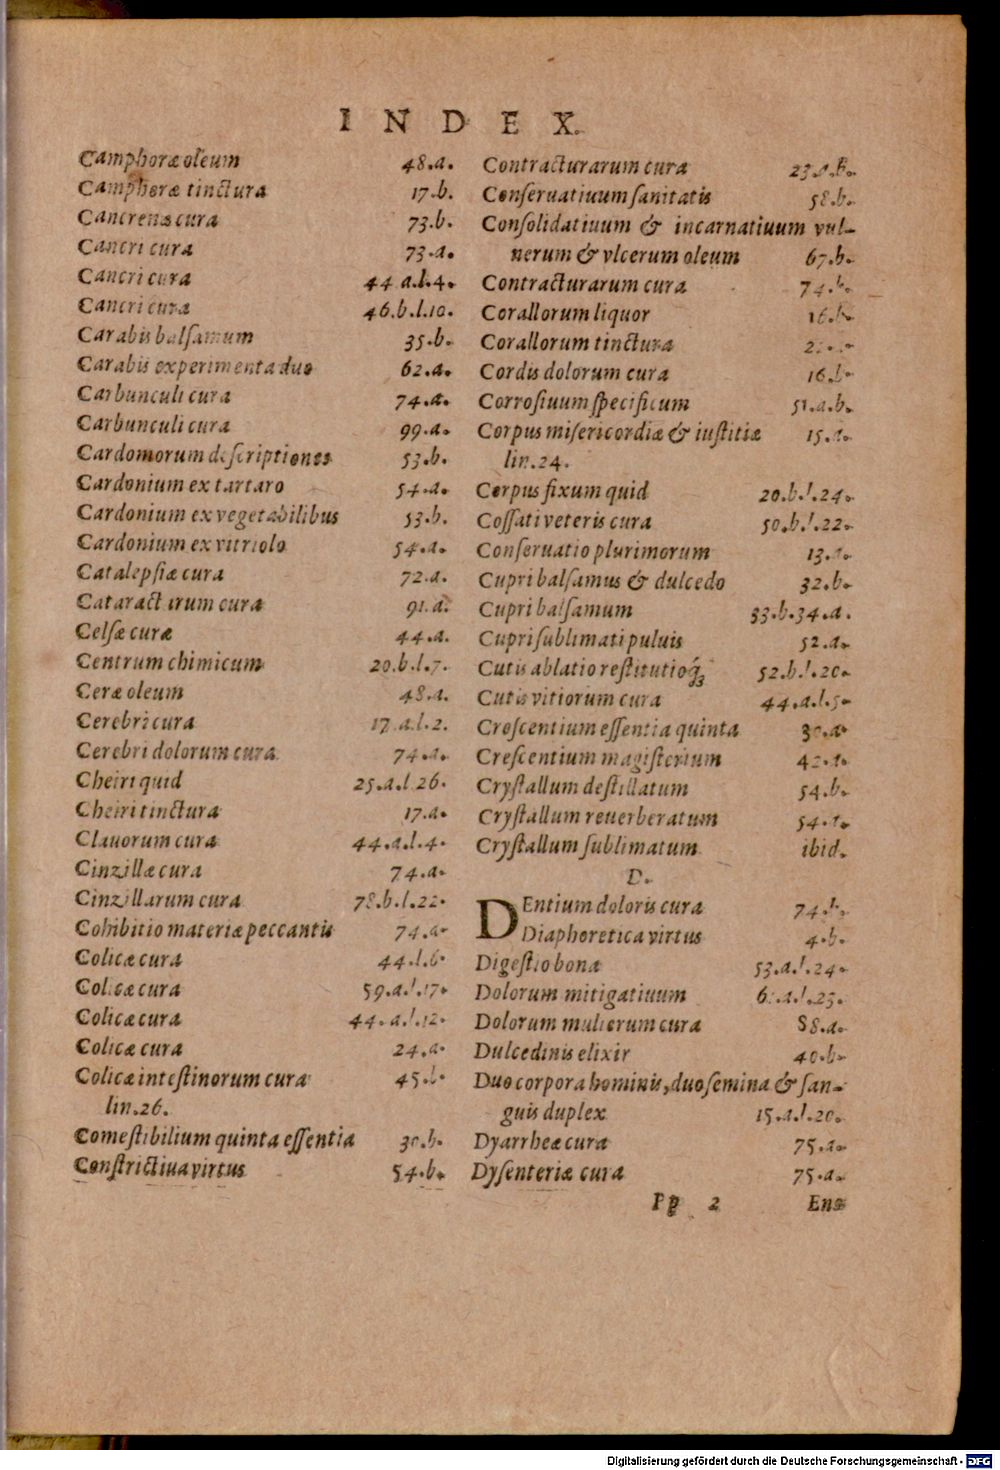 INDEX.
Camphoræ oleum 48.a.
Camphoræ tinctura 17.b.
Cancrenæ cura 73.b.
Cancri cura 73.a.
Cancri cura 44.a.l.4.
Cancri cura 46.b.l.10.
Carabis balſamum 35.b.
Carabis experimenta duo 62.a.
Carbunculi cura 74.a.
Carbunculi cura 99.a.
Cardomorum deſcriptiones 53.b.
Cardonium ex tartaro 54.a.
Cardonium ex vegetabilibus 53.b.
Cardonium ex vitriolo 54.a.
Catalepſiæ cura 72.a.
Cataractarum cura 91.a.
Celſæ curæ 44.a.
Centrum chimicum 20.b.l.7.
Ceræ oleum 48.a.
Cerebri cura 17.a.l.2.
Cerebri dolorum cura 74.a.
Cheiri quid 25.a.l.26.
Cheiri tinctura 17.a.
Clauorum cura 44.a.l.4.
Cinzillæ cura 74.a.
Cinzillarum cura 78.b.l.22.
Cohibitio materiæ peccantis 74.a.
Colicæ cura 44.l.6.
Colicæ cura 59.a.l.17.
Colicæ cura 44.a.l.12.
Colicæ cura 24.a.
Colicæ inteſtinorum cura 45.b.
lin.26.
Comeſtibilium quinta eſſentia 30.b.
Conſtrictiua virtus 54.b.
Contracturarum cura 23.a.B.
Conſeruatiuum ſanitatis 58.b.
Conſolidatiuum & incarnatiuum vul-
nerum & vlcerum oleum 67.b.
Contracturarum cura 74.b.
Corallorum liquor 16.b.
Corallorum tinctura
Cordis dolorum cura 16.b.
Corroſiuum ſpecificum 51.a.b.
Corpus miſericordiæ & iuſtitiæ 15.a.
lin.24.
Corpus fixum quid 20.b.l.24.
Coſſati veteris cura 50.b.l.22.
Conſeruatio plurimorum 13.a.
Cupri balſamus & dulcedo 32.b.
Cupri balſamum 33.b.34.a.
Cupri ſublimati puluis 52.a.
Cutis ablatio reſtitutioq́ꝫ 52.b.l.20.
Cutis vitiorum cura 44.a.l.5.
Creſcentium eſſentia quinta 30.a.
Creſcentium magiſterium 42.a.
Cryſtallum deſtillatum 54.b.
Cryſtallum reuerberatum 54.a.
Cryſtallum ſublimatum ibid.
D.
DEntium doloris cura 74.b.
Diaphoretica virtus 4.b.
Digeſtio bona 53.a.l.24.
Dolorum mitigatiuum
Dolorum mulierum cura 88.a.
Dulcedinis elixir 40.b.
Duo corpora hominis, duo ſemina & ſan-
guis duplex 15.a.l.20.
Dyarrheæ cura 75.a.
Dyſenteriæ cura 75.a.
Pp 2 Ens
Digitalisierung gefördert durch die Deutsche Forschungsgemeinschaft - DFG